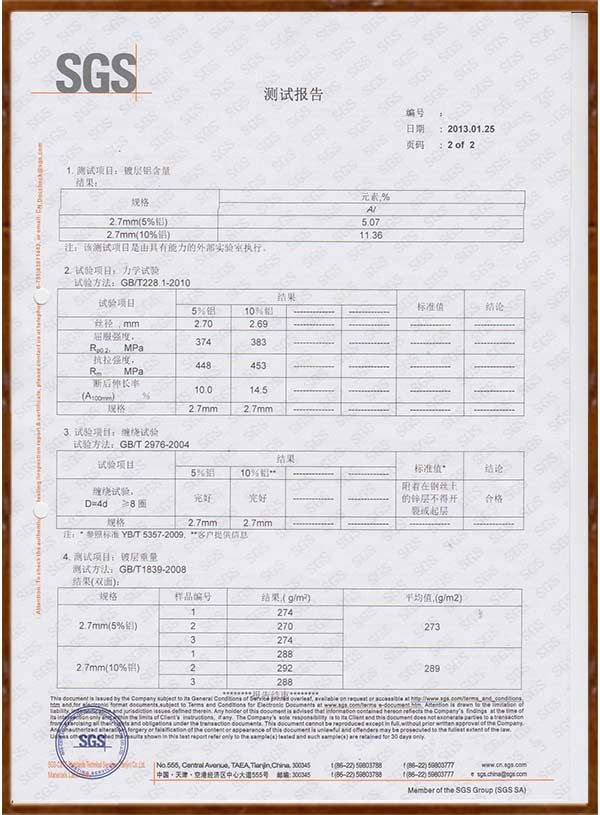 SGS
测试报告
编号 :
日期 : 2013.01.25
页码 : 2 of 2
1. 测试项目: 镀层铝含量
结果:
规格 元素,%
Al
2.7mm(5%铝) 5.07
2.7mm(10%铝) 11.36
注: 该测试项目是由具有能力的外部实验室执行。
2. 试验项目: 力学试验
试验方法: GB/T228.1-2010
试验项目 结果 标准值 结论
5%铝 10%铝 ------------ ------------
丝径, mm 2.70 2.69 ------------ ------------ ------------ ------------
屈服强度, Rp0.2, MPa 374 383 ------------ ------------ ------------ ------------
抗拉强度, Rm, MPa 448 453 ------------ ------------ ------------ ------------
断后伸长率 (A100mm) % 10.0 14.5 ------------ ------------ ------------ ------------
规格 2.7mm 2.7mm ------------ ------------ ------------ ------------
3. 试验项目: 缠绕试验
试验方法: GB/T 2976-2004
试验项目 结果 标准值* 结论
5%铝 10%铝** ------------ ------------
缠绕试验, D=4d ≥8圈 完好 完好 ------------ ------------ 附着在钢丝上的锌层不得开裂或起层 合格
规格 2.7mm 2.7mm ------------ ------------ ------------ ------------
注: * 参照标准 YB/T 5357-2009, **客户提供信息
4. 测试项目: 镀层重量
测试方法: GB/T1839-2008
结果(双面):
规格 样品编号 结果,( g/m²) 平均值,(g/m2)
2.7mm(5%铝) 1 274 273
2 270
3 274
2.7mm(10%铝) 1 288 289
2 292
3 288
********报告结束********
This document is issued by the Company subject to its General Conditions of Service printed overleaf, available on request or accessible at http://www.sgs.com/terms_and_conditions.
htm and,for electronic format documents,subject to Terms and Conditions for Electronic Documents at www.sgs.com/terms_e-document.htm. Attention is drawn to the limitation of
liability, indemnification and jurisdiction issues defined therein. Any holder of this document is advised that information contained hereon reflects the Company's findings at the time of
its intervention only and within the limits of Client's instructions, if any. The Company's sole responsibility is to its Client and this document does not exonerate parties to a transaction
from exercising all their rights and obligations under the transaction documents. This document cannot be reproduced except in full,without prior written approval of the Company.
Any unauthorized alteration, forgery or falsification of the content or appearance of this document is unlawful and offenders may be prosecuted to the fullest extent of the law.
Unless otherwise stated the results shown in this test report refer only to the sample(s) tested and such sample(s) are retained for 30 days only.
SGS
No.555, Central Avenue, TAEA,Tianjin,China, 300345 t (86–22) 59803788 f (86–22) 59803777 www.cn.sgs.com
中国・天津・空港经济区中心大道555号 邮编: 300345 t (86–22) 59803788 f (86–22) 59803777 e sgs.china@sgs.com
Member of the SGS Group (SGS SA)